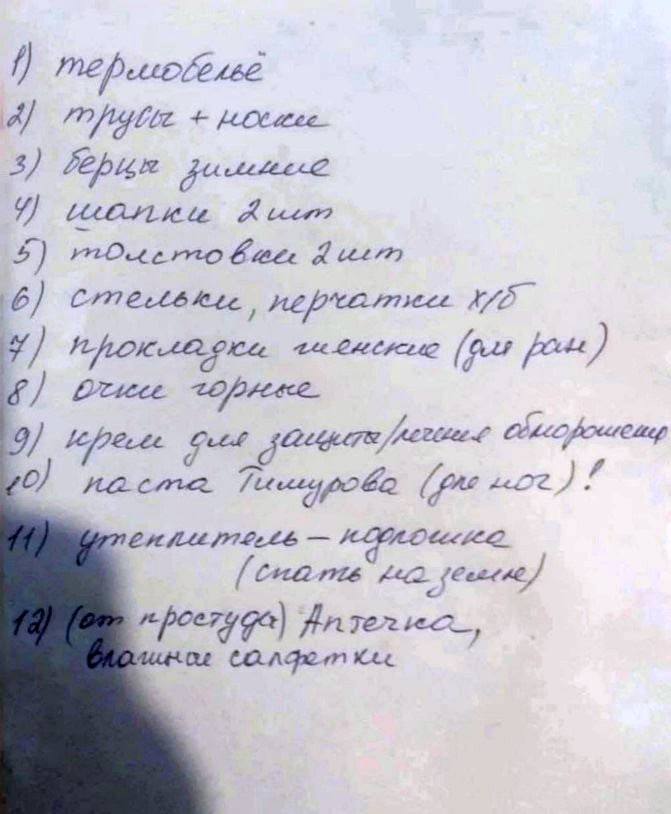 1) термобельё
2) трусы + носки
3) берцы зимние
4) шапки 2 шт
5) толстовки 2 шт
6) стельки, перчатки х/б
7) прокладки женские (для ран)
8) очки горные
9) крем для защиты/лечения обморожения
10) паста Тимурова (для ног)!
11) утеплитель – подложка
(спать на земле)
12) (от простуды) Аптечка,
влажные салфетки